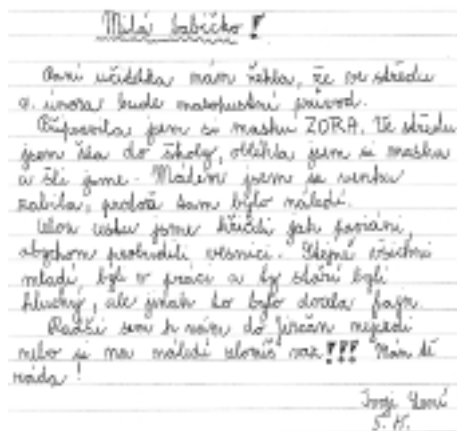 Milá babičko!
Paní učitelka nám řekla, že ve středu
9. února bude masopustní průvod.
Připravila jsem si masku ZORA. Ve středu
jsem šla do školy, oblíkla jsem si masku
a šli jsme. Málem jsem se venku
zabila, protož tam bylo náledí.
celou cestu jsme křičeli jak pavijáni,
abychom probudili vesnici. Stejně všichni
mladí byli v práci a ty staří byli
hluchý, ale jinak to bylo docela fajn.
Radši sem k nám do Jirčan nejezdi
nebo si na náledí zlomíš vaz!!! Mám tě
ráda!
Tvoji
5. K.